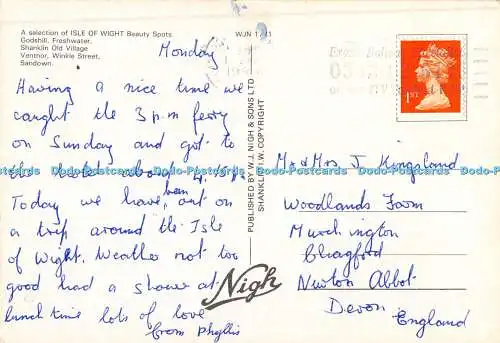 A selection of ISLE OF WIGHT Beauty Spots
Godshill, Freshwater,
Shanklin Old Village
Ventnor, Winkle Street,
Sandown.
WJN 1
Monday
Having a nice time we
caught the 3 p.m ferry
on Sunday and got to
the hotel about 4.
Today we have been out on
a trip around the Isle
of Wight. Weather not too
good had a shower at
lunch time lots of love
from Phyllis
PUBLISHED BY W.J. NIGH & SONS LTD
SHANKLIN I.W. COPYRIGHT
Nigh
1ST
Mr & Mrs J Kingsland
Woodlands Farm
Murchington
Chagford
Newton Abbot
Devon
England
Dodo-Postcards Dodo-Postcards Dodo-Postcards Dodo-Postcards Dodo-Postcards